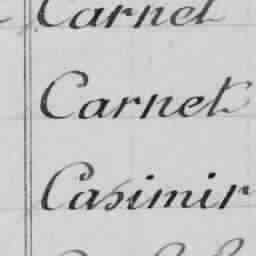 Carnet
Carnet
Casimir